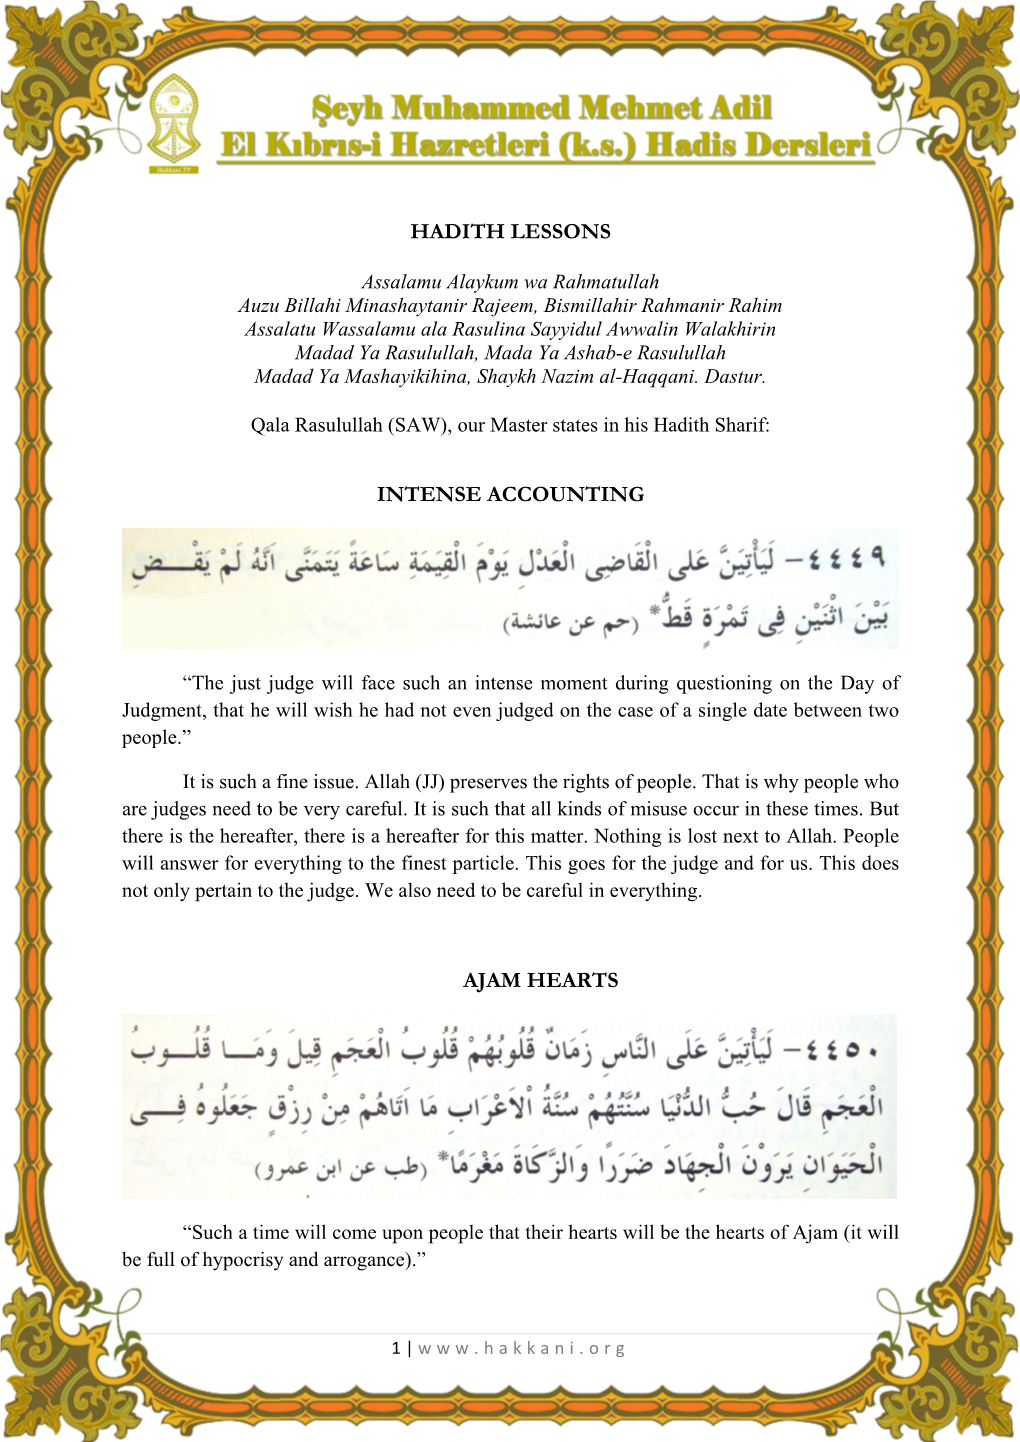 Şeyh Muhammed Mehmet Adil
El Kıbrıs-i Hazretleri (k.s.) Hadis Dersleri
Hakkani TV
HADITH LESSONS
Assalamu Alaykum wa Rahmatullah
Auzu Billahi Minashaytanir Rajeem, Bismillahir Rahmanir Rahim
Assalatu Wassalamu ala Rasulina Sayyidul Awwalin Walakhirin
Madad Ya Rasulullah, Mada Ya Ashab-e Rasulullah
Madad Ya Mashayikihina, Shaykh Nazim al-Haqqani. Dastur.
Qala Rasulullah (SAW), our Master states in his Hadith Sharif:
INTENSE ACCOUNTING
٤٤٤٩– لَيَأْتِيَنَّ عَلَى الْقَاضِى الْعَدْلِ يَوْمَ الْقِيَمَةِ سَاعَةً يَتَمَنَّى اَنَّهُ لَمْ يَقْــضِ
بَيْنَ اثْنَيْنِ فِى تَمْرَةٍ قَطُّ* (حم عن عائشة)
“The just judge will face such an intense moment during questioning on the Day of
Judgment, that he will wish he had not even judged on the case of a single date between two
people.”
It is such a fine issue. Allah (JJ) preserves the rights of people. That is why people who
are judges need to be very careful. It is such that all kinds of misuse occur in these times. But
there is the hereafter, there is a hereafter for this matter. Nothing is lost next to Allah. People
will answer for everything to the finest particle. This goes for the judge and for us. This does
not only pertain to the judge. We also need to be careful in everything.
AJAM HEARTS
٤٤٥٠– لَيَأْتِيَنَّ عَلَى النَّاسِ زَمَانٌ قُلُوبُهُمْ قُلُوبُ الْعَجَمِ قِيلَ وَمَــا قُلُــوبُ
الْعَجَمِ قَالَ حُبُّ الدُّنْيَا سُنَّتُهُمْ سُنَّةُ الْاَعْرَابِ مَا اَتَاهُمْ مِنْ رِزْقٍ جَعَلُوهُ فِــى
الْحَيَوَانِ يَرَوْنَ الْجِهَادَ ضَرَرًا وَالزَّكَاةَ مَغْرَمًا* (طب عن ابن عمرو)
“Such a time will come upon people that their hearts will be the hearts of Ajam (it will
be full of hypocrisy and arrogance).”
1 | www.hakkani.org